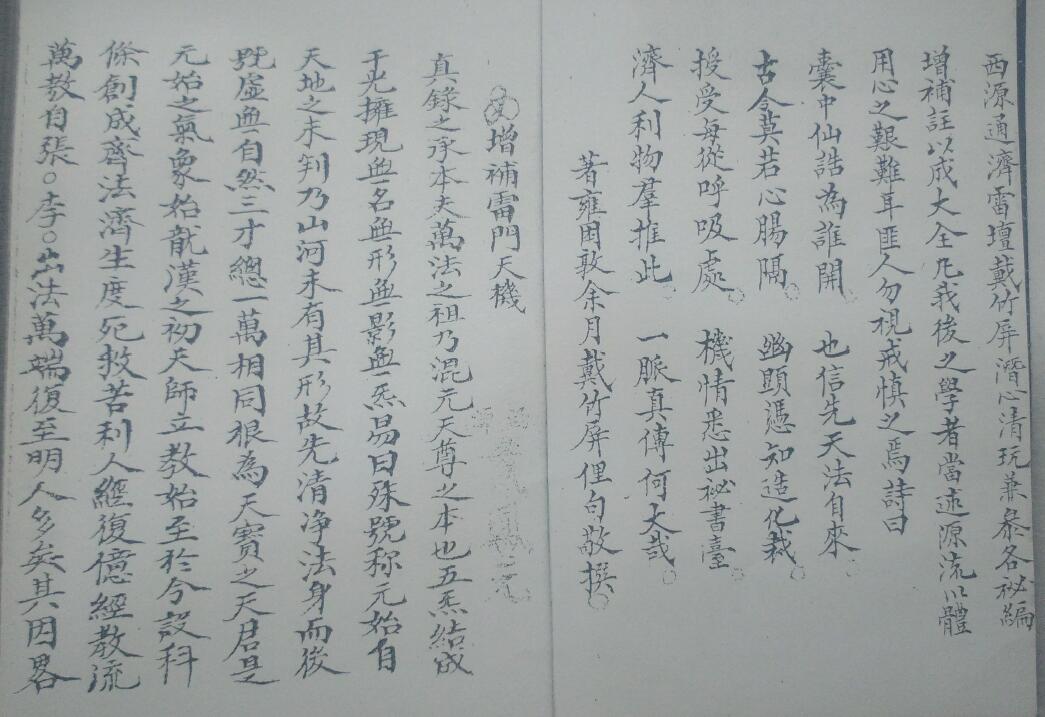 西源通濟雷壇戴竹屏潛心清玩兼叅各祕編
增補註以成大全凡我後之學者當述源流以體
用心之艱難耳匪人勿視戒慎之焉詩曰
囊中仙誥為誰開 也信先天法自來
古今莫若心腸隔 幽顕憑知造化裁
授受每從呼吸處 機情悉出祕書臺
濟人利物羣推此 一脈真傳何大哉
著雍困敦余月戴竹屏俚句敬撰
增補雷門天機
真錄之承本夫萬法之祖乃混元天尊之本也五炁結成
于光擁現無名無形無影無炁易曰殊號称元始自
天地之未判乃山河未有其形故先清净法身而後
號虛無自然三才總一萬相同根為天寶之天君是
元始之氣象始龍漢之初天師立教始至於今設科
條創成齊法濟生度死救苦利人經復億經教流
萬教自張○李○出法萬端復至明人多矣其因畧